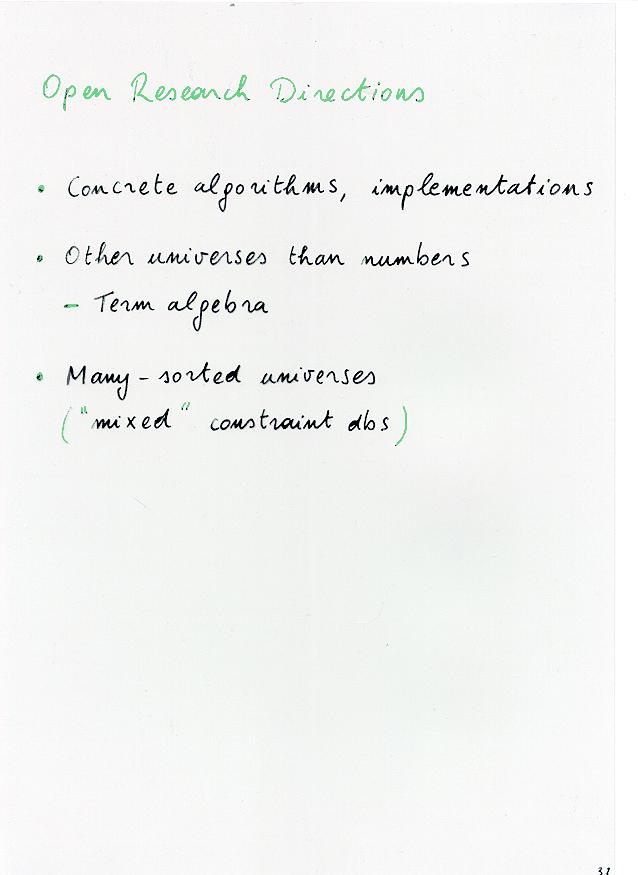 Open Research Directions
• Concrete algorithms, implementations
• Other universes than numbers
– Term algebra
• Many-sorted universes
("mixed" constraint dbs)